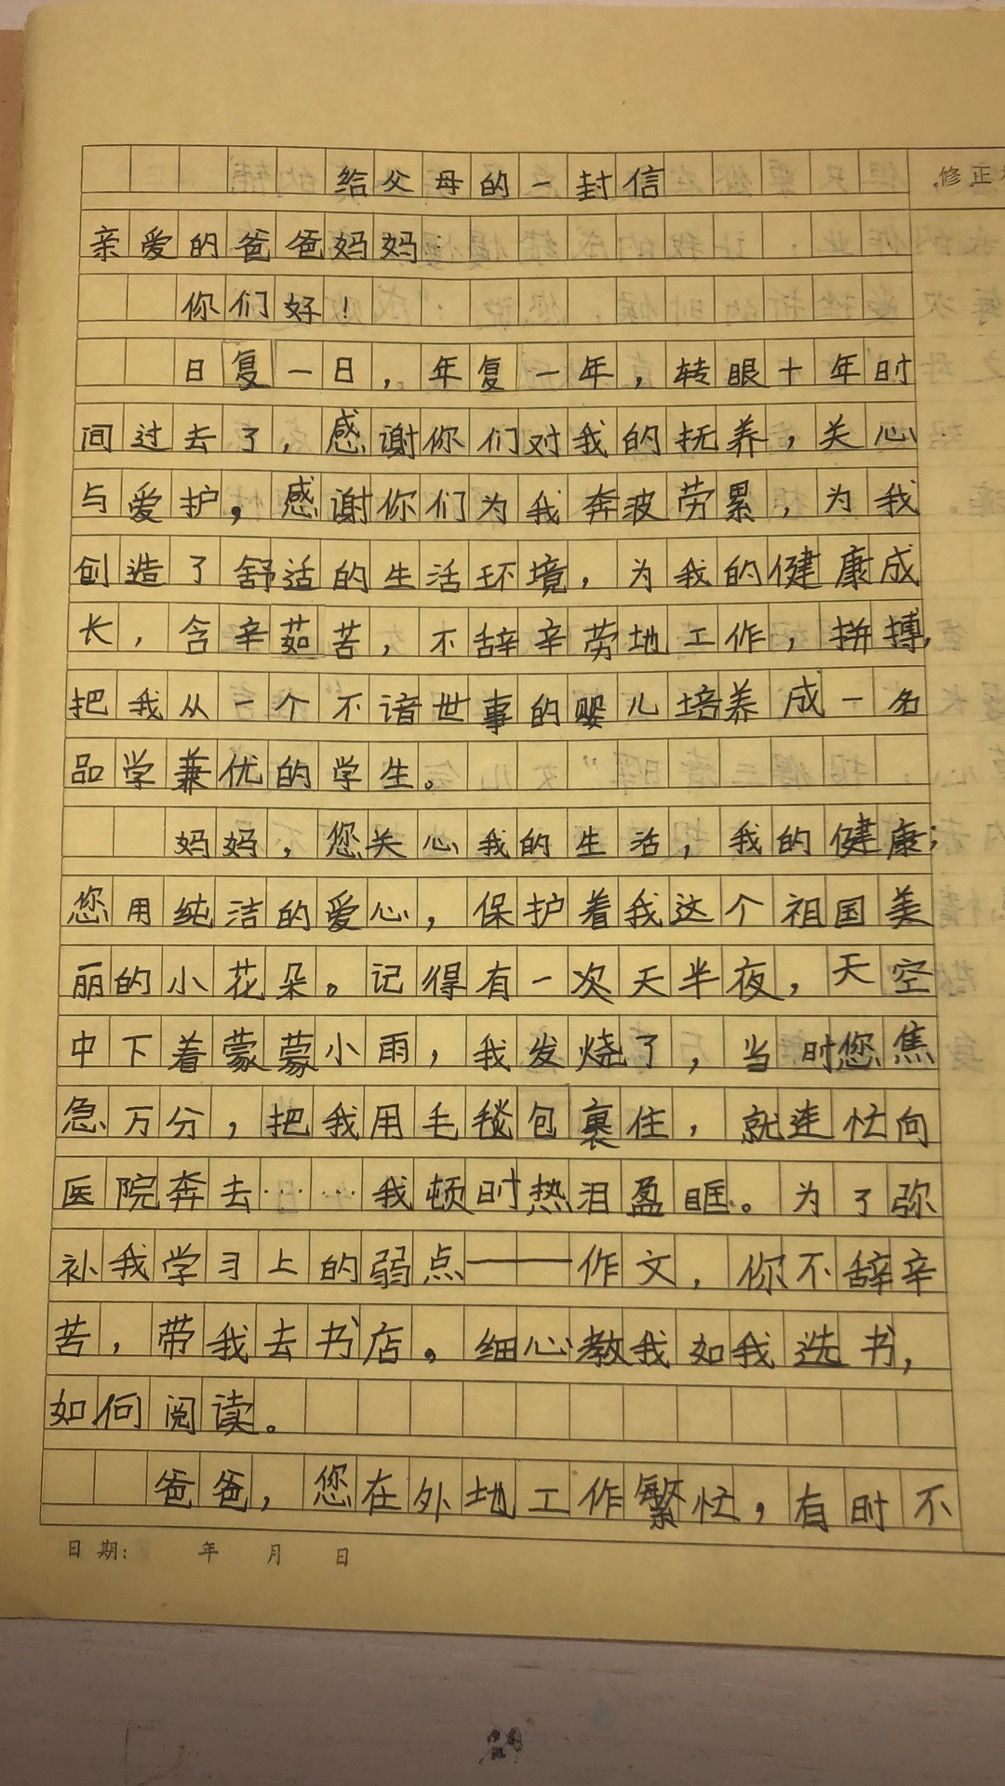 给父母的一封信
修正
亲爱的爸爸妈妈：
你们好！
日复一日，年复一年，转眼十年时
间过去了，感谢你们对我的抚养，关心
与爱护，感谢你们为我奔波劳累，为我
创造了舒适的生活环境，为我的健康成
长，含辛茹苦，不辞辛劳地工作，拼搏，
把我从一个不谙世事的婴儿培养成一名
品学兼优的学生。
妈妈，您关心我的生活，我的健康；
您用纯洁的爱心，保护着我这个祖国美
丽的小花朵。记得有一次天半夜，天空
中下着蒙蒙小雨，我发烧了，当时您焦
急万分，把我用毛毯包裹住，就连忙向
医院奔去……我顿时热泪盈眶。为了弥
补我学习上的弱点——作文，你不辞辛
苦，带我去书店。细心教我如我选书，
如何阅读。
爸爸，您在外地工作繁忙，有时不
日期： 年 月 日